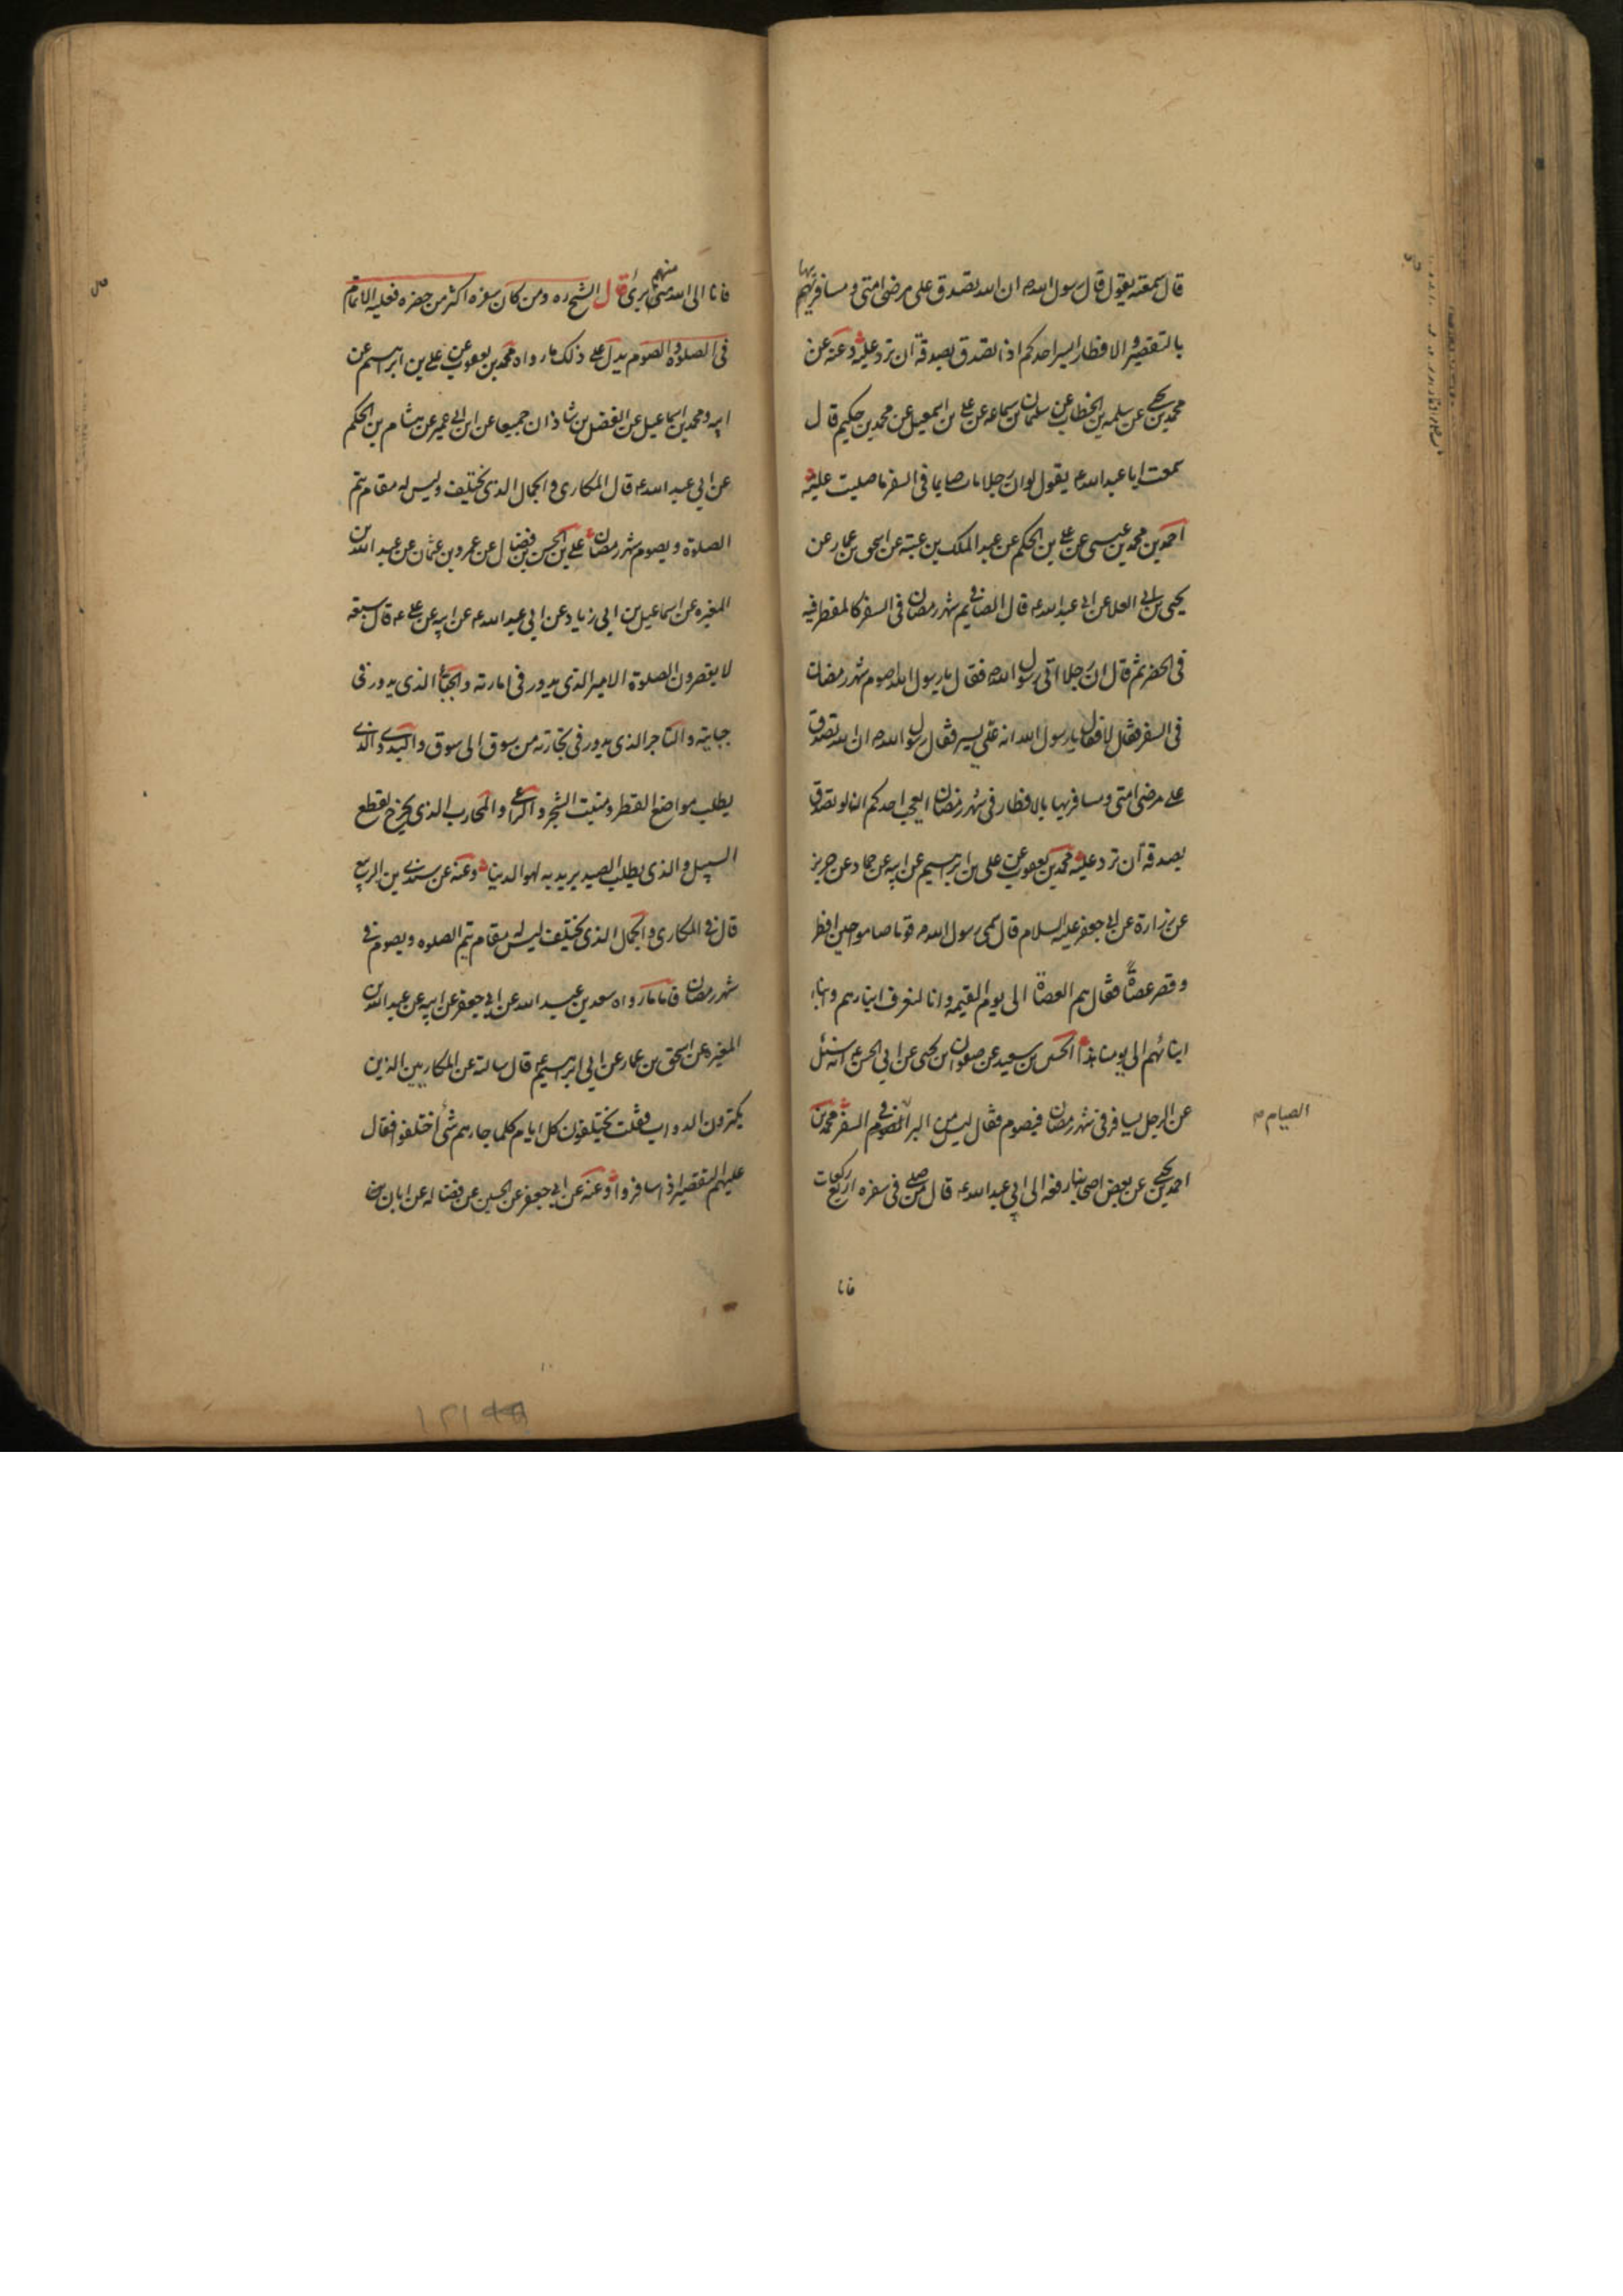 قال سمعته يقول قال رسول الله ص ان الله تصدق على مرضى امتى و مسافريهم
بها
بالتقصير و الافطار ايسر احدكم اذا تصدق بصدقة ان ترد عليه وعنه عن
محمد بن يحيى عن سلمه بن الخطاب عن سليمان بن سماعه عن على بن اسمعيل عن محمد بن حكيم قال
سمعت ابا عبد الله ع يقول لو ان رجلا مات صايما فى السفر ما صليت عليه
احمد بن محمد بن عيسى عن على بن الحكم عن عبد الملك بن عتبة عن اسحق بن عمار عن
يحيى بن ابى العلا عن ابى عبد الله ع قال الصائم فى شهر رمضان فى السفر كالمفطر فيه
فى الحضر ثم قال ان رجلا اتى رسول الله ص فقال يا رسول الله اصوم شهر رمضان
فى السفر فقال لا فقال يا رسول الله انه على يسير فقال رسول الله ص ان الله تصدق
على مرضى امتى و مسافريها بالافطار فى شهر رمضان ايعجب احدكم ان لو تصدق
بصدقة ان ترد عليه محمد بن يعقوب عن على بن ابرهيم عن ابيه عن حماد عن حريز
عن زرارة عن ابى جعفر عليه السلام قال سمى رسول الله ص قوما صاموا حين افطر
و قصر عصاةً فقال هم العصاة الى يوم القيمه و انا لنعرف ابنارهم و ابناء
ابنائهم الى يومنا هذا الحسين بن سعيد عن صفوان بن يحيى عن ابى الحسن ع انه سئل
عن الرجل يسافر فى شهر رمضان فيصوم فقال ليس من البر الصوم فى السفر محمد بن
الصيام م
احمد بن يحيى عن بعض اصحابنا رفعه الى ابى عبد الله ع قال من صلى فى سفره اربع ركعات
فانا
فانا الى الله منهم برئ قال الشيخ ره و من كان سفره اكثر من حضره فعليه الاتمام
فى الصلوة و الصوم يدل على ذلك ما رواه محمد بن يعقوب عن على بن ابرهيم عن
ابيه و محمد بن اسماعيل عن الفضل بن شاذان جميعا عن ابن ابى عمير عن هشام بن الحكم
عن ابى عبد الله ع قال المكارى و الجمال الذى يختلف و ليس له مقام يتم
الصلوة و يصوم شهر رمضان على بن الحسن بن فضال عن عمرو بن عثمان عن عبد الله بن
المغيره عن اسماعيل بن ابى زياد عن ابى عبد الله ع عن ابيه عن على ع قال سبعه
لا يقصرون الصلوة الامير الذى يدور فى امارته و الجباة الذى يدور فى
جبايته و التاجر الذى يدور فى تجارته من سوق الى سوق و البدوى الذى
يطلب مواضع القطر و منبت الشجر و الراعى و المحارب الذى يخرج لقطع
السبيل و الذى يطلب الصيد يريد به لهو الدنيا وعنه عن سندى بن الربيع
قال فى المكارى و الجمال الذى يختلف ليس له مقام يتم الصلوه و يصوم فى
شهر رمضان فاما ما رواه سعد بن عبد الله عن ابى جعفر عن ابيه عن عبد الله بن
المغيره عن اسحق بن عمار عن ابى ابرهيم ع قال سالته عن المكاريين الذين
يكترون الدواب فقلت يختلفون كل ايام كلما جاءهم شئ اختلفوا فقال
عليهم التقصير اذا سافروا وعنه عن ابى جعفر عن الحسين عن فضاله عن ابان بن